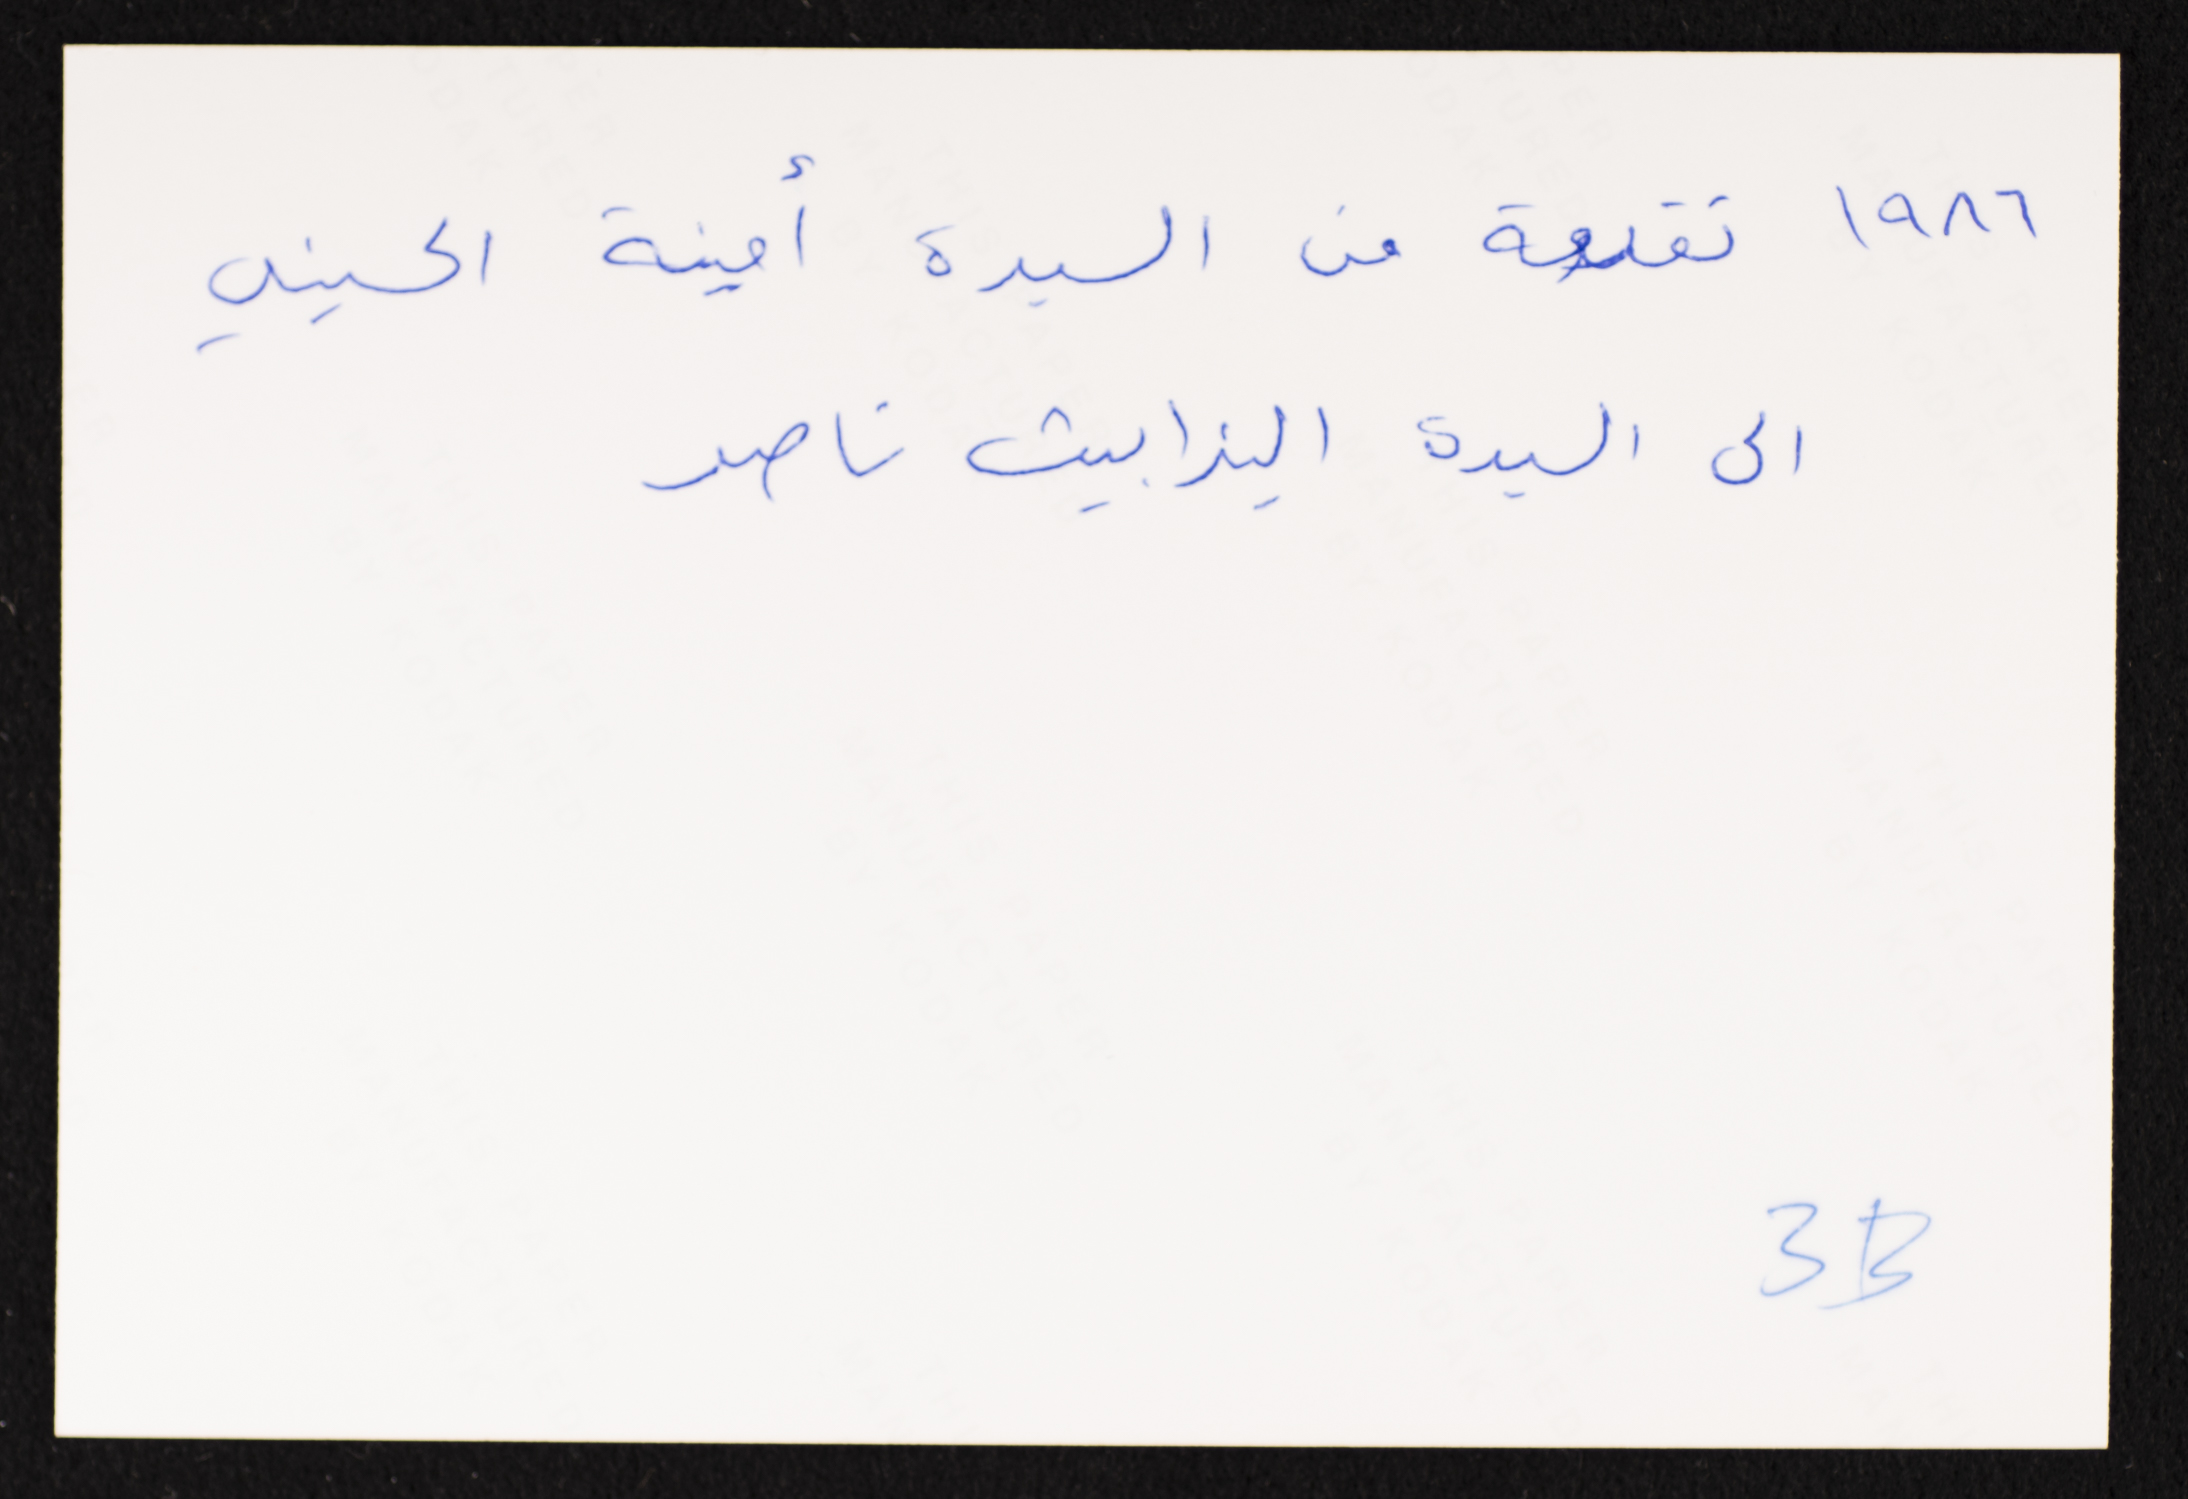 ١٩٨٦ تقدمة من السيدة أمينة الحسيني
الى السيدة اليزابيث ناصر
3B